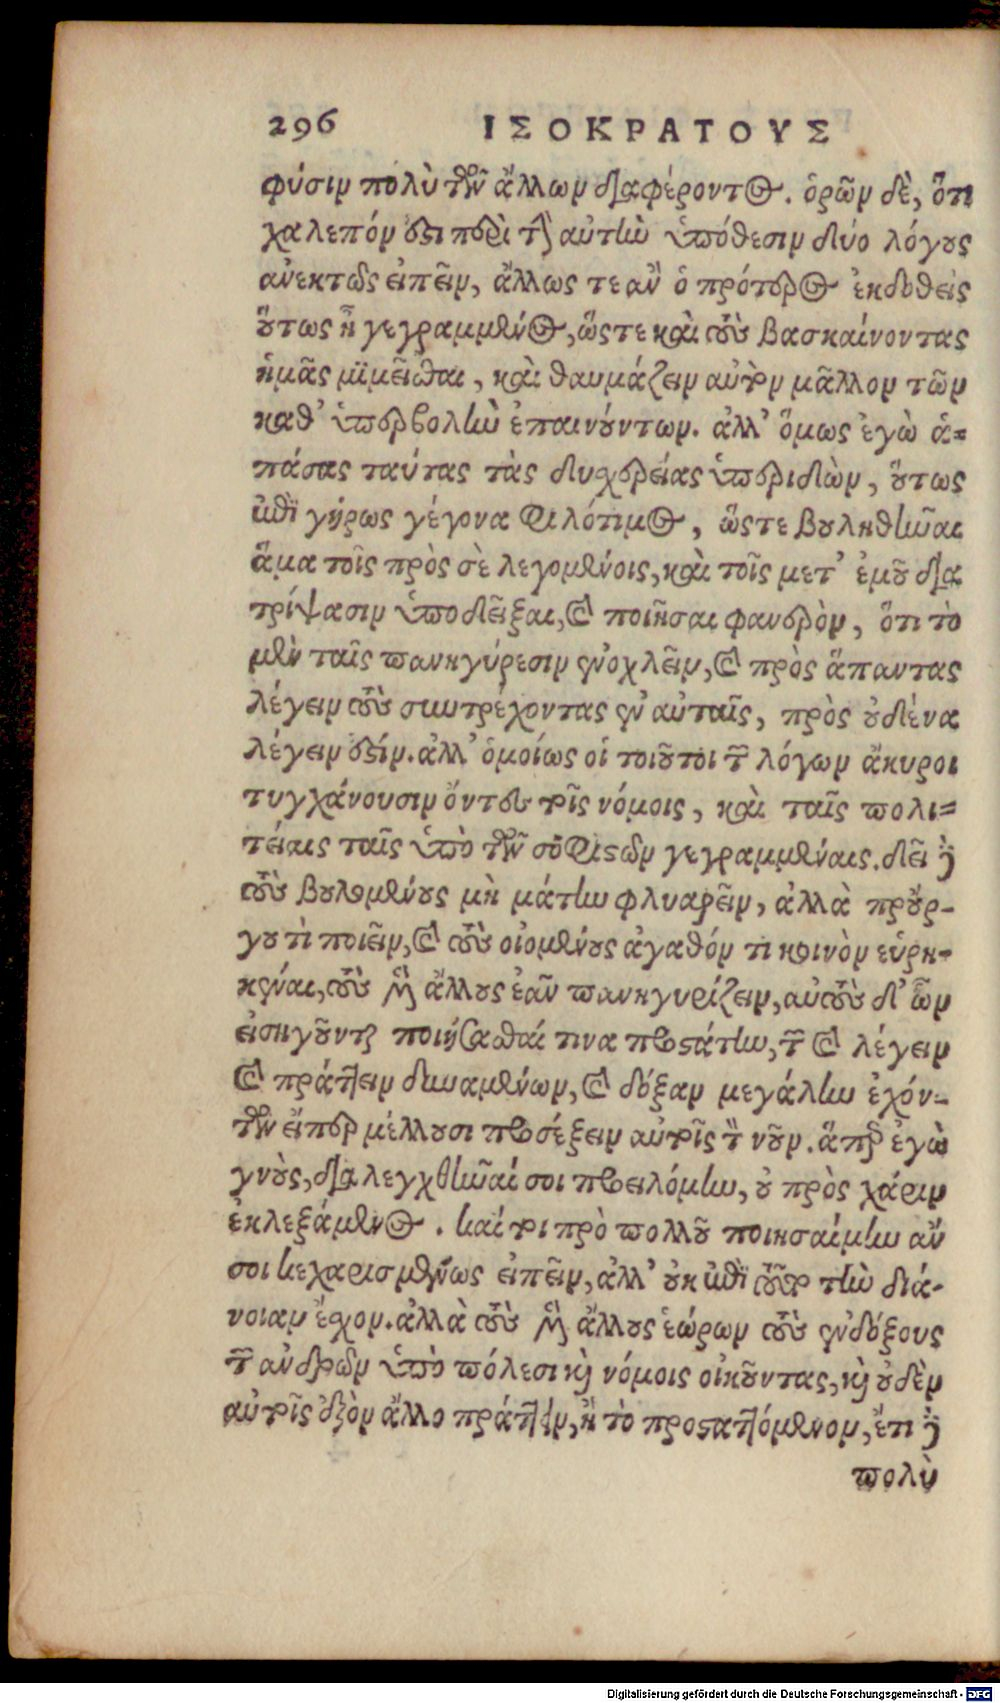 296 ΙΣΟΚΡΑΤΟΥΣ
φύσιν πολὺ τῶν ἄλλων διαφέροντος. ὁρῶν δὲ, ὅτι
χαλεπόν ἐστι περὶ τὴν αὐτὴν ὑπόθεσιν δύο λόγους
ἀνεκτῶς εἰπεῖν, ἄλλως τε ἂν ὁ πρότερος ἐκδοθεὶς
οὕτως ᾖ γεγραμμένος, ὥστε καὶ τοὺς βασκαίνοντας
ἡμᾶς μιμεῖσθαι, καὶ θαυμάζειν αὐτὸν μᾶλλον τῶν
καθ’ ὑπερβολὴν ἐπαινούντων. ἀλλ’ ὅμως ἐγὼ ἁ-
πάσας ταύτας τὰς δυχερείας ὑπεριδὼν, οὕτως
ἐπὶ γήρως γέγονα φιλότιμος, ὥστε βουληθῆναι
ἅμα τοῖς πρὸς σὲ λεγομένοις, καὶ τοῖς μετ’ ἐμοῦ δια
τρίψασιν ὑποδεῖξαι, καὶ ποιῆσαι φανερὸν, ὅτι τὸ
μὲν ταῖς πανηγύρεσιν ἐνοχλεῖν, καὶ πρὸς ἅπαντας
λέγειν τοὺς συντρέχοντας ἐν αὐταῖς, πρὸς οὐδένα
λέγειν ἐστίν. ἀλλ’ ὁμοίως οἱ τοιοῦτοι τῶν λόγων ἄκυροι
τυγχάνουσιν ὄντες τοῖς νόμοις, καὶ ταῖς πολι-
τείαις ταῖς ὑπὸ τῶν σοφιστῶν γεγραμμέναις. δεῖ δὲ
τοὺς βουλομένους μὴ μάτην φλυαρεῖν, ἀλλὰ προὔρ-
γου τὶ ποιεῖν, καὶ τοὺς οἰομένους ἀγαθόν τι κοινὸν εὑρη-
κέναι, τοὺς μὲν ἄλλους ἐᾶν πανηγυρίζειν, αὐτοὺς δ’ ὧν
εἰσηγοῦνται ποιήσασθαί τινα προστάτην, τῶν καὶ λέγειν
καὶ πράττειν δυναμένων, καὶ δόξαν μεγάλην ἐχόν-
των εἴπερ μέλλουσι προσέξειν αὐτοῖς τὸν νοῦν. ἅπερ ἐγὼ
γνοὺς, διαλεγχθῆναί σοι προειλόμην, οὐ πρὸς χάριν
ἐκλεξάμενος. καί τοι πρὸ πολλοῦ ποιησαίμην ἄν
σοι κεχαρισμένως εἰπεῖν, ἀλλ’ οὐκ ἐπὶ τούτῳ τὴν διά-
νοιαν ἔσχον. ἀλλὰ τοὺς μὲν ἄλλους ἑώρων τοὺς ἐνδόξους
τῶν ἀνδρῶν ὑπὸ πόλεσι καὶ νόμοις οἰκοῦντας, καὶ οὐδὲν
αὐτοῖς ἐξὸν ἄλλο πράττειν, ἢ τὸ προσταττόμενον, ἔτι δὲ
πολὺ
Digitalisierung gefördert durch die Deutsche Forschungsgemeinschaft - DFG